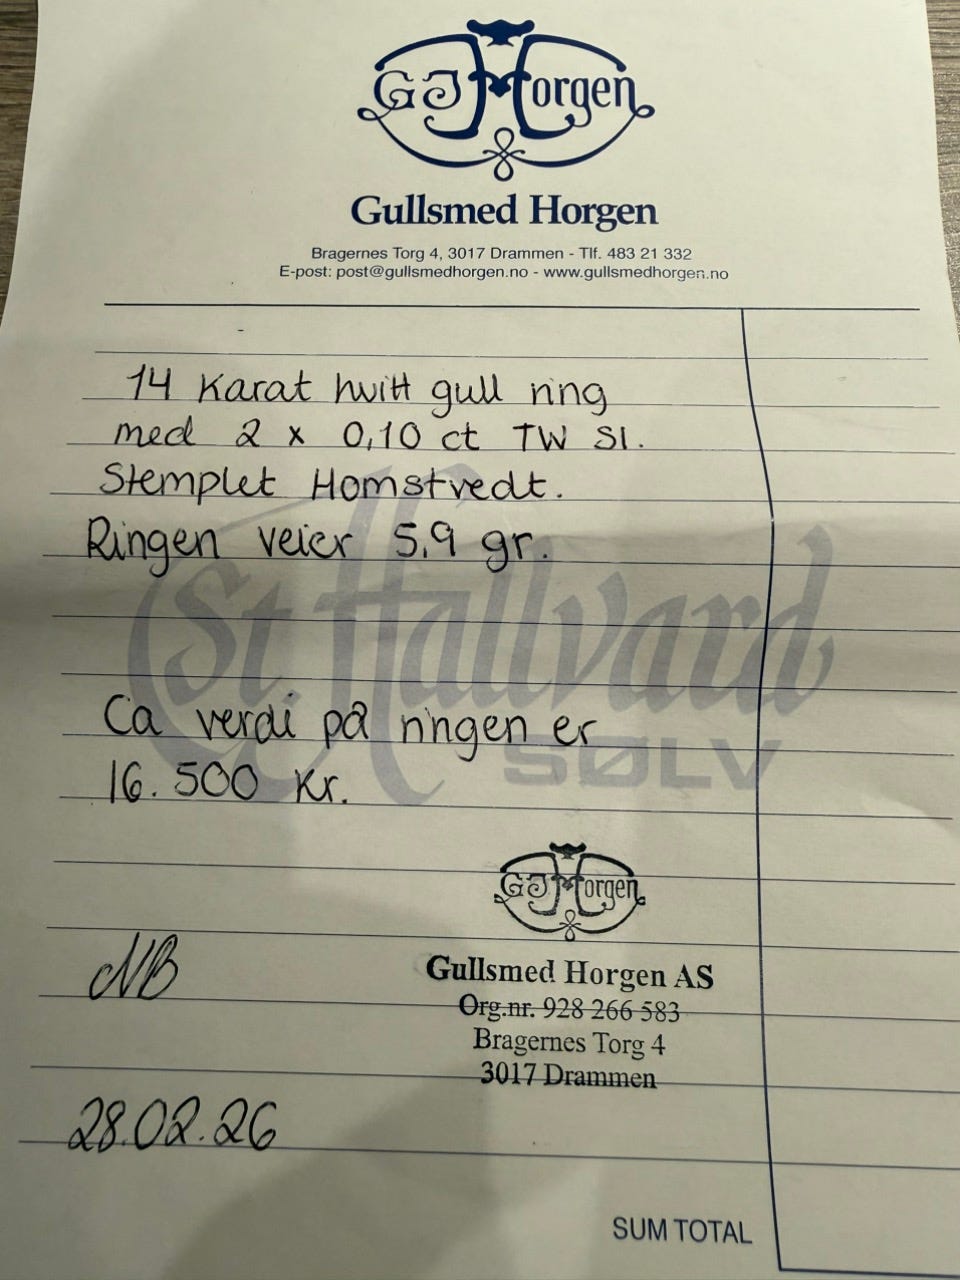 GJ Horgen
Gullsmed Horgen
Bragernes Torg 4, 3017 Drammen - Tlf. 483 21 332
E-post: post@gullsmedhorgen.no - www.gullsmedhorgen.no
14 Karat hvitt gull ring
med 2 x 0,10 ct TW SI.
Stemplet Homstvedt.
Ringen veier 5,9 gr.
St. Hallvard
SØLV
Ca verdi på ringen er
16.500 Kr.
GJ Horgen
Gullsmed Horgen AS
Org.nr. 928 266 583
Bragernes Torg 4
3017 Drammen
NB
28.02.26
SUM TOTAL